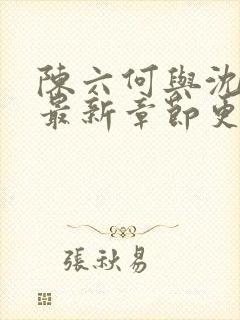 陳六何與沈
最新章節更
張秋易